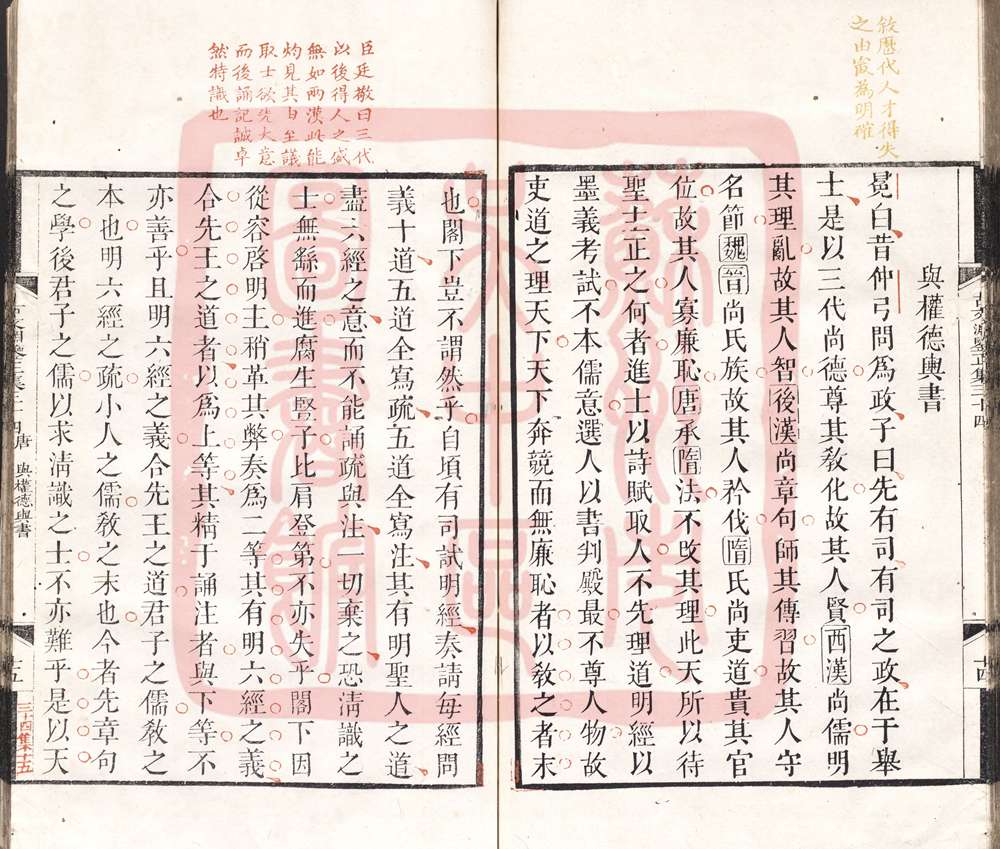 敘歷代人才得失
之由最為明確
與權德輿書
冕白昔仲弓問爲政子曰先有司有司之政在于舉
士是以三代尚德尊其敎化故其人賢西漢尚儒明
其理亂故其人智後漢尚章句師其傳習故其人守
名節魏晉尚氏族故其人矜伐隋氏尚吏道貴其官
位故其人寡廉恥唐承隋法不攺其理此天所以待
聖主正之何者進士以詩賦取人不先理道明經以
墨義考試不本儒意選人以書判殿最不尊人物故
吏道之理天下天下奔競而無廉恥者以敎之者末
古文淵鑒正集三十四
十四
臣廷敬曰三代
以後得人之盛
無如兩漢此能
灼見其自至議
取士欲先大意
而後誦記誠卓
然特識也
也閣下豈不謂然乎自頃有司試明經奏請每經問
義十道五道全寫疏五道全寫注其有明聖人之道
盡六經之意而不能誦疏與注一切棄之恐淸識之
士無繇而進腐生豎子比肩登第不亦失乎閣下因
從容啓明主稍革其弊奏爲二等其有明六經之義
合先王之道者以爲上等其精于誦注者與下等不
亦善乎且明六經之義合先王之道君子之儒敎之
本也明六經之疏小人之儒敎之末也今者先章句
之學後君子之儒以求淸識之士不亦難乎是以天
唐 與權德輿書
十五
三十四集十五